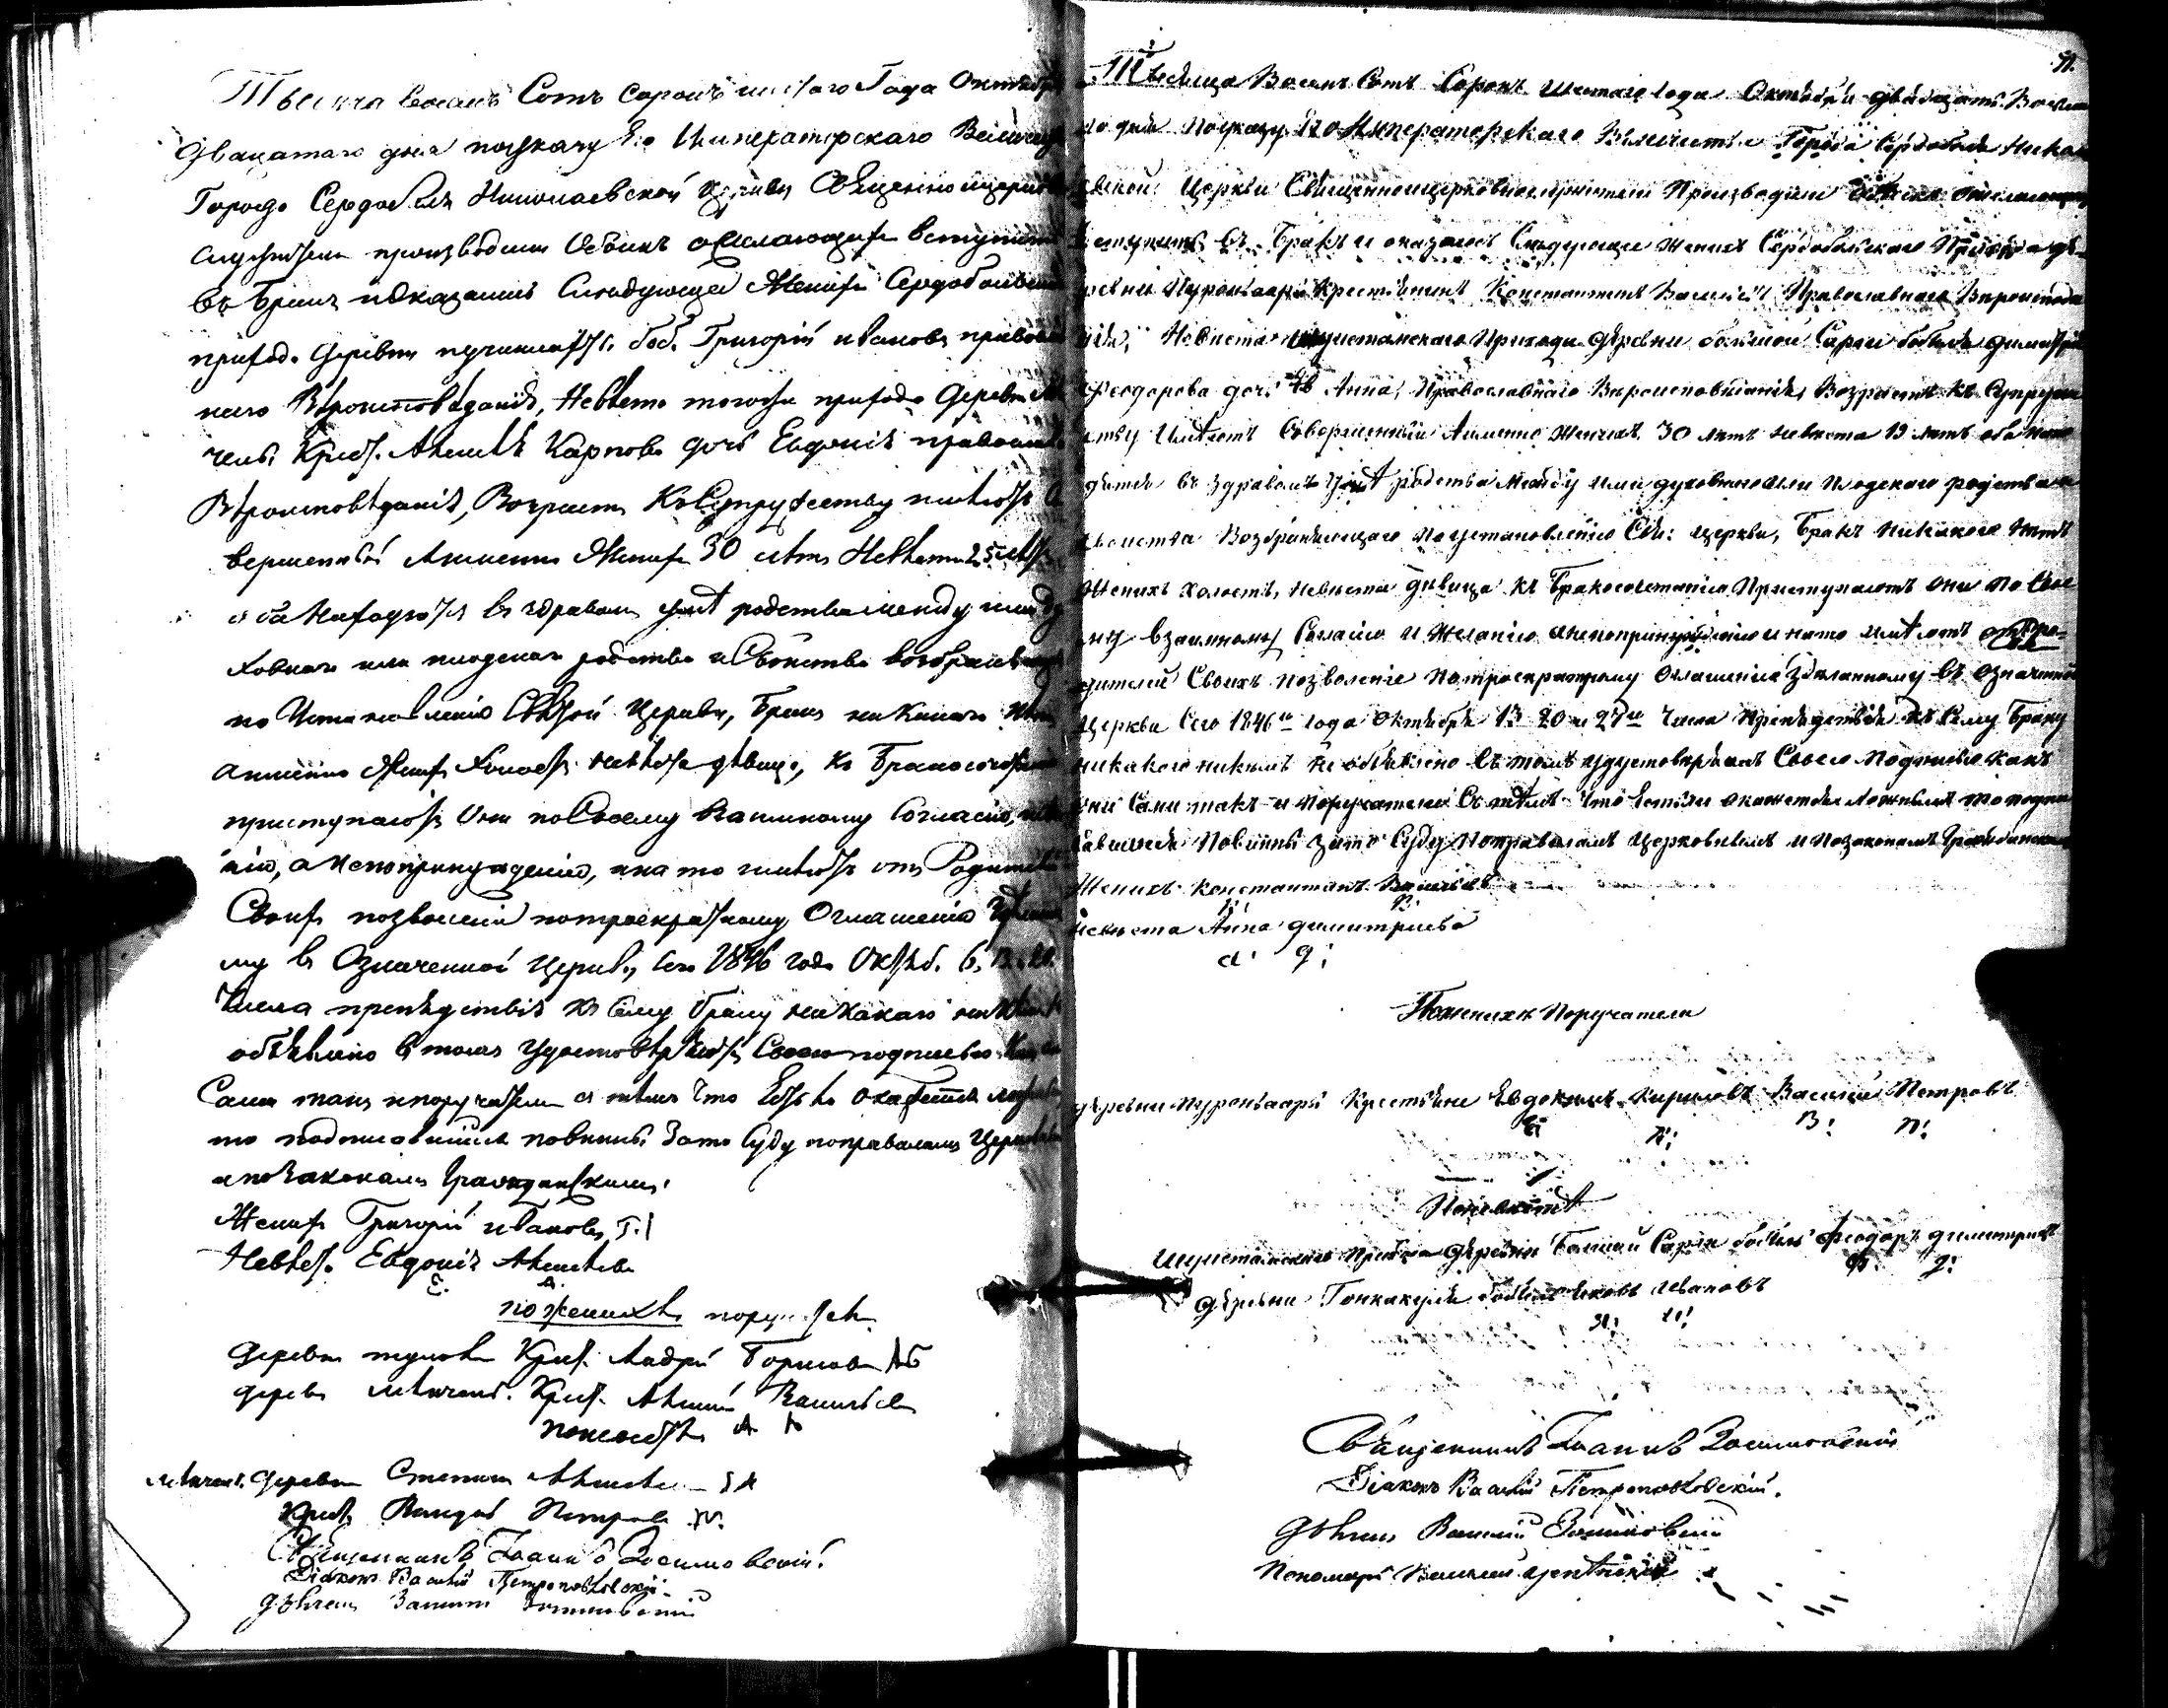 Тысяча восемь Сотъ сорокъ шестаго Года Октября
двацатаго дня по указу Его Императорскаго Величес
Города Сердоболя Николаевской церкви Священноцерков
служители производили Обыскъ о желающихъ вступить
въ бракъ и оказалось Слѣдующее Женихъ Сердобольскаго
приход. деревни боб. Григорій Ивановъ православ
наго Вѣроисповѣданія, Невѣста тогоже прихода Деревн
Крест. Алексѣя Карпова дочь Евдокія православ
Вѣроисповѣданія, Возрастъ Къ Супружеству имѣютъ Со
вершенный Аименно Женихъ 30 лѣтъ Невѣста 25 лѣтъ
оба Находятся въ здравомъ умѣ родства между ими ду
ховнаго или плодскаго родства и Свойства возбраняющ
по Установленію Святой Церкви, Бракъ никакого нѣтъ
Аименно Женихъ Холостъ невѣста дѣвица, къ Бракосочетан
приступаютъ Они по Своему Взаимному Согласію, жела
нію, а непопринужденію, и на то имѣютъ отъ Родител
Своихъ позволеніе по троекратному Оглашенію здѣланно
му въ Означенной церкви, Сего 1846 года Октяб. 6, 13 и 20
Числа препядствія къ Сему браку никакого никѣмъ
объявлено въ томъ удостовѣряютъ Своею подписью Какъ
Сами такъ и поручатели съ тѣмъ что Естьли окажется ложно
то подписавшіися повинны за то Суду по правиламъ Церковн
и по Законамъ Гражданскимъ.
Женихъ Григорій Ивановъ Г. І
Невѣст. Евдокія Алексѣева
Е. А.
по женихѣ поручател
деревни Крест. Андрей Борисовъ АБ
дерев Крест. Алексѣй Васильев
А В
по невѣстѣ
деревни Степанъ Алексѣев С А
Крест. Петровъ
Священникъ Іоаннъ Зосимовскій.
Діаконъ Василій Петропавловскій.
Дьячекъ Василій Зосимовскій
51.
Тысяща Восемь Сотъ Сорокъ Шестаго года Октября двадцать Восьма
го дня По указу Его Императорскаго Величества Города Сердоболя Никола
евской Церкви Священноцерковнослужители Производили обыскъ о желающихъ
вступить въ Бракъ и оказалось Слѣдующее Женихъ Сердобольскаго Прихода де
ревни Крестьянинъ Константинъ Васильевъ Православнаго Вѣроисповѣда
нія, Невѣста Шуистамскаго Прихода деревни большой Сарки бобыля Димитрія
Феодорова дочь Анна, Православнаго Вѣроисповѣданія, Возрастъ къ Супруже
ству Имѣютъ Совершенный Аименно Женихъ 30 лѣтъ Невѣста 19 лѣтъ оба нахо
дятся въ здравомъ умѣ родства Между ими духовнаго или Плодскаго родства и
свойства Возбраняющаго по установленію Свя: церкви, Бракъ никакого нѣтъ
Женихъ холостъ, невѣста дѣвица къ Бракосочетанію Приступаютъ они по Свое
му взаимному Согласію и Желанію анепопринужденію и на то имѣютъ отъ Ро=
дителей Своихъ позволеніе По троекратному Оглашенію зделанному въ означенной
Церкви Сего 1846го года Октября 13 20 и 27го Числа Препядствія къ Сему Браку
никакого никѣмъ не объявлено въ томъ удустоверяемъ Своею Подписью какъ
они Сами такъ и Поручатели Съ тѣмъ что Естьли окажется Ложнымъ то подпи
савшіися Повинны зато Суду По правиламъ Церковнымъ и По законамъ Гражданским
Женихъ Константинъ Васильевъ
К: В:
Невѣста Анна Димитриева
А: Д:
По женихѣ Поручатели
деревни Крестьяне Евдокимъ Кириловъ Василій Петровъ
Е: К: В: П:
По невѣстѣ
Шуистамскаго Прихода деревни Болшой Сарки бобыль Феодоръ Димитріевъ
Ф: Д:
деревни бобыль Яковъ Ивановъ
Я: И:
Священникъ Іоаннъ Зосимовскій
Діаконъ Василій Петропавловскій.
Дьячекъ Василій Зосимовскій
Пономарь Василій